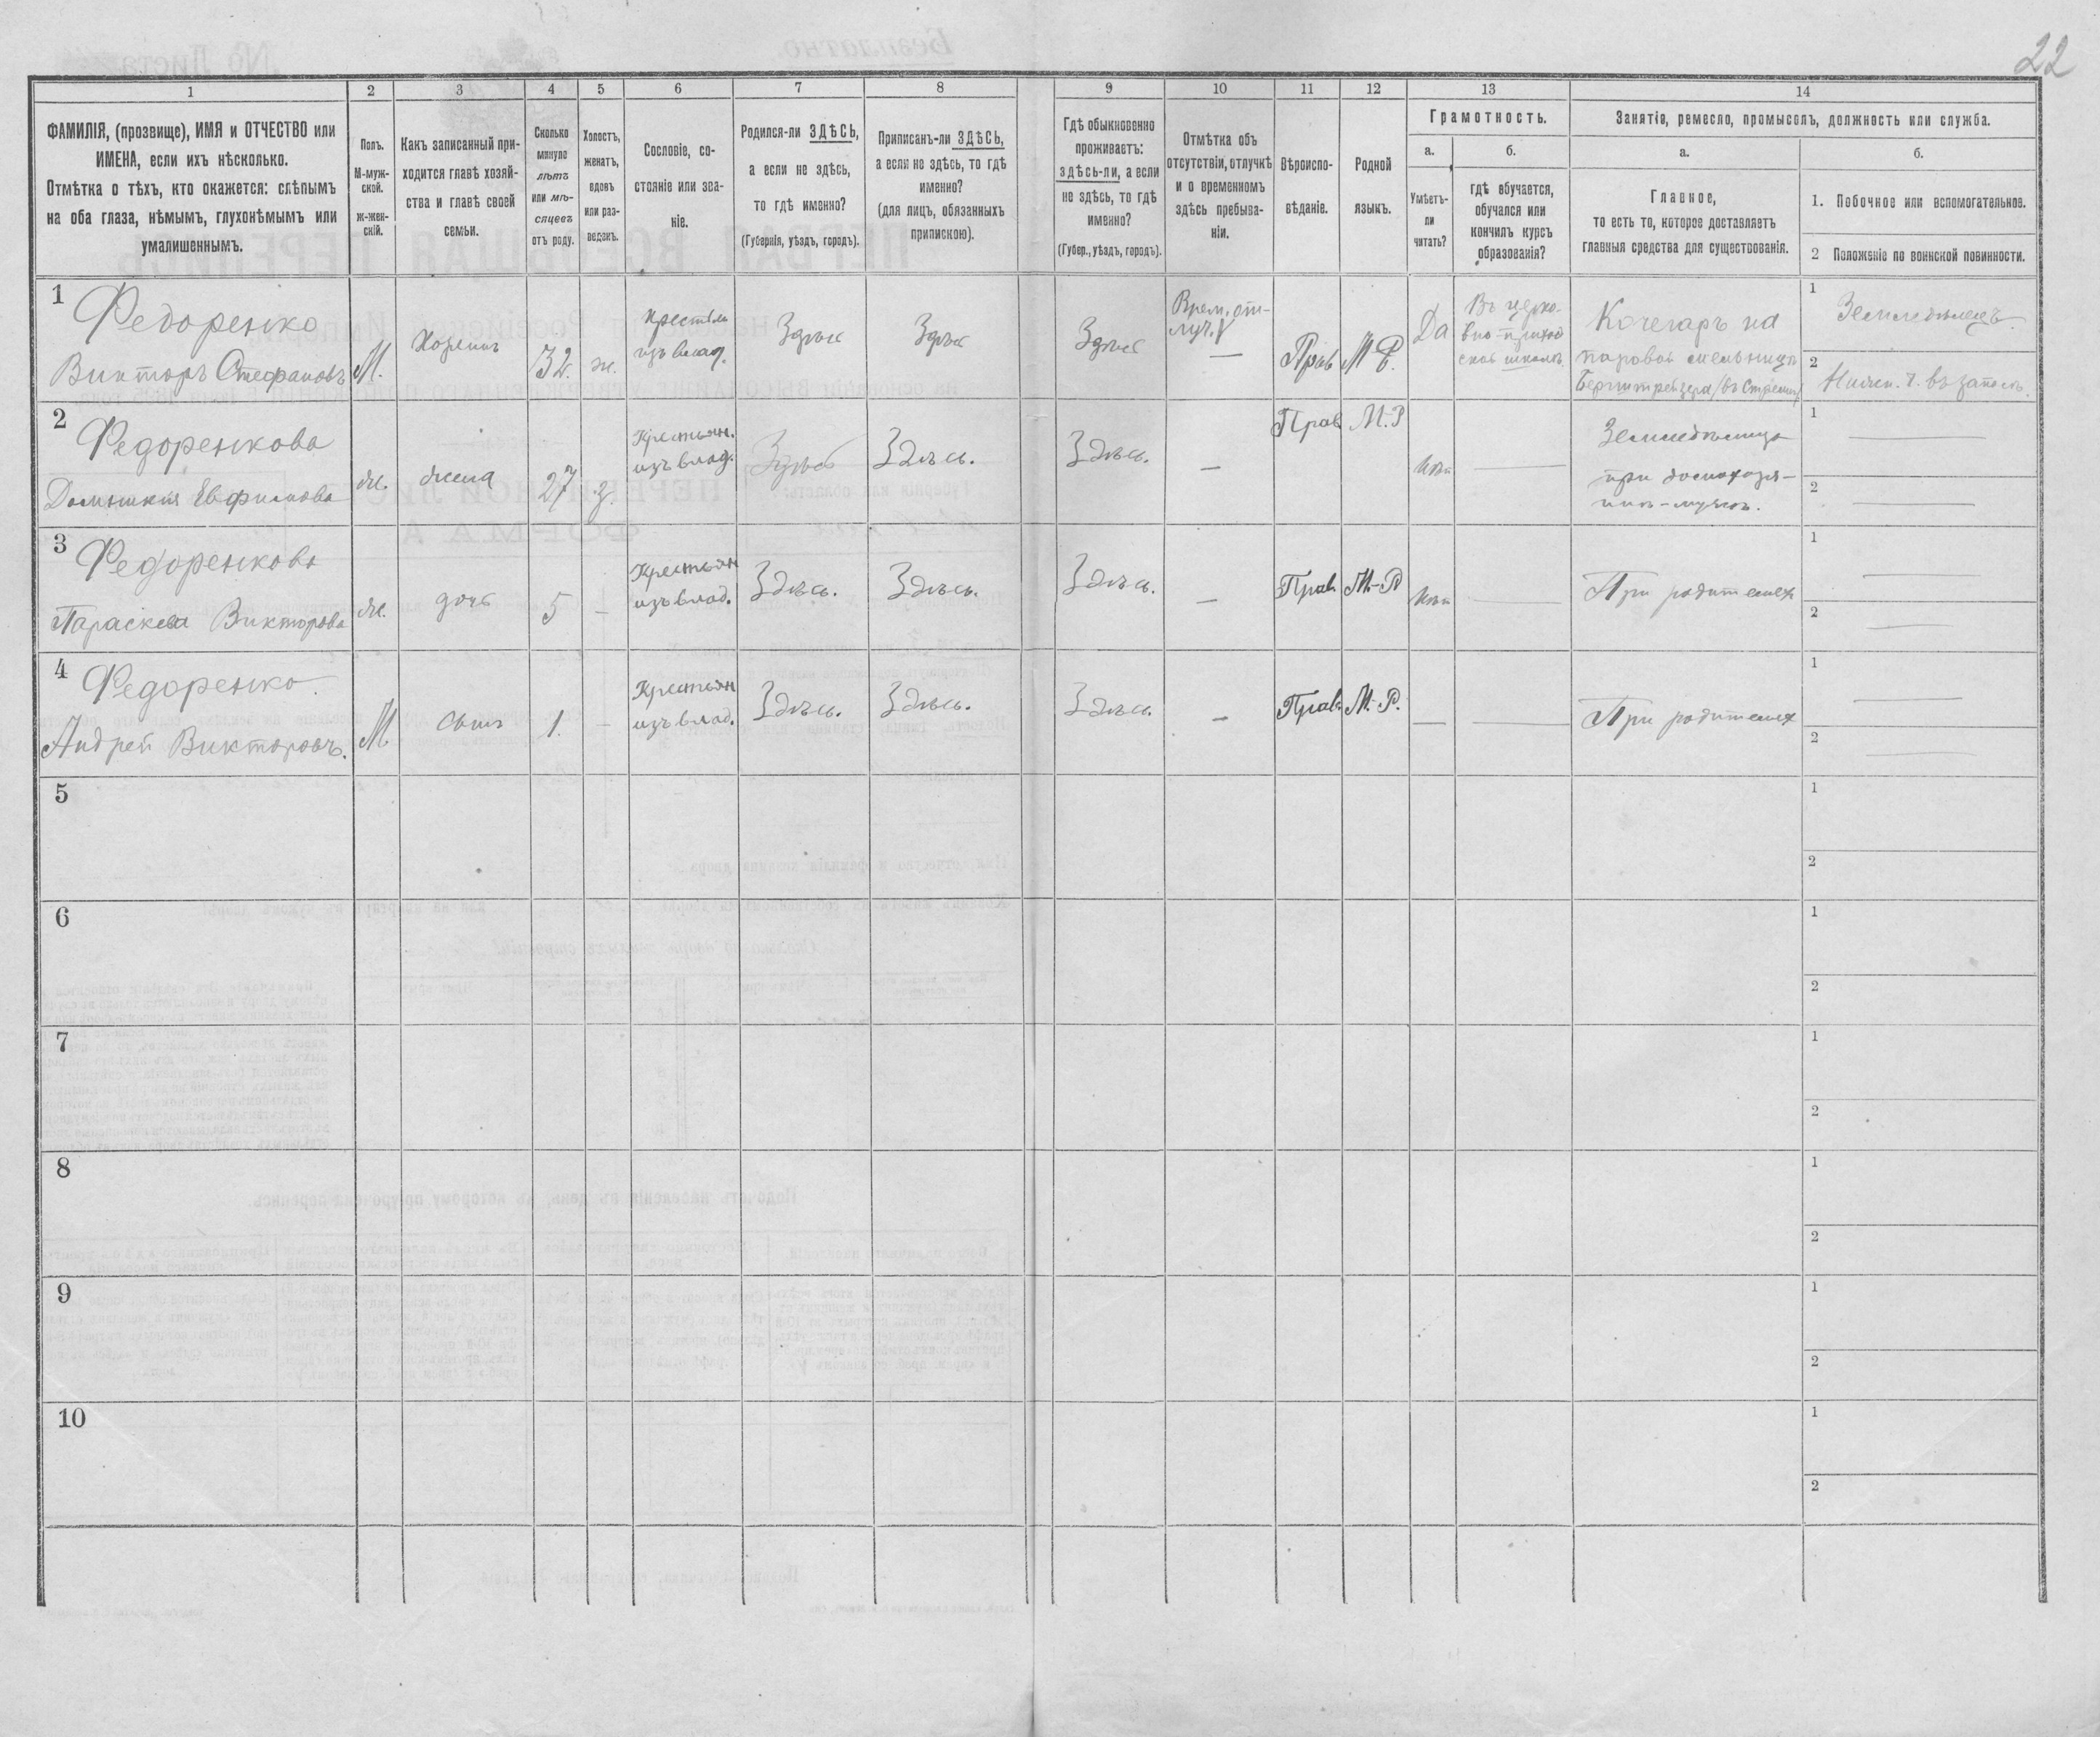 22
1 2 3 4 5 6 7 8 9 10 11 12 13 14
ФАМИЛІЯ, (прозвище), ИМЯ и ОТЧЕСТВО или
ИМЕНА, если ихъ нѣсколько.
Отмѣтка о тѣхъ, кто окажется: слѣпымъ
на оба глаза, нѣмымъ, глухонѣмымъ или
умалишеннымъ.
Полъ.
М-муж-
ской.
ж-жен-
скій.
Какъ записанный при-
ходится главѣ хозяй-
ства и главѣ своей
семьи.
Сколько
минуло
лѣтъ
или мѣ-
сяцевъ
отъ роду.
Холостъ,
женатъ,
вдовъ
или раз-
веденъ.
Сословіе, со-
стояніе или зва-
ніе.
Родился-ли ЗДѢСЬ,
а если не здѣсь,
то гдѣ именно?
(Губернія, уѣздъ, городъ).
Приписанъ-ли ЗДѢСЬ,
а если не здѣсь, то гдѣ
именно?
(для лицъ, обязанныхъ
припискою).
Гдѣ обыкновенно
проживаетъ:
здѣсь-ли, а если
не здѣсь, то гдѣ
именно?
(Губер., уѣздъ, городъ).
Отмѣтка объ
отсутствіи, отлучкѣ
и о временномъ
здѣсь пребыва-
ніи.
Вѣроиспо-
вѣданіе.
Родной
языкъ.
Грамотность.
а.
Умѣетъ-
ли
читать?
б.
гдѣ обучается,
обучался или
кончилъ курсъ
образованія?
Занятіе, ремесло, промыселъ, должность или служба.
а.
Главное,
то есть то, которое доставляетъ
главныя средства для существованія.
б.
1. Побочное или вспомогательное.
2 Положеніе по воинской повинности.
1
Федоренко
Викторъ Стефановъ
М.
Хозяинъ
32
ж.
Крестьян
изъ влад.
Здѣсь
Здѣсь
Здѣсь
Врем. от-
луч. V
—
Прав
М-Р.
Да
Въ церко-
вно-приход
ской школѣ
Кочегаръ на
паровой мельницѣ
1 Земледѣлецъ.
2 въ запасѣ
2
Федоренкова
Домникия Евфимова
Ж.
жена
27
з.
Крестьян.
изъ влад.
Здѣсь
Здѣсь.
Здѣсь.
—
Прав
М.-Р
Нѣт
—
Земледѣлица
при домохозя-
инѣ-мужѣ.
1 —
2 —
3
Федоренкова
Параскева Викторова
Ж.
дочь
5
—
Крестьян
изъ влад.
Здѣсь.
Здѣсь.
Здѣсь.
—
Прав.
М.-Р
Нѣт
—
При родителях
1 —
2 —
4
Федоренко.
Андрей Викторовъ.
М
сынъ
1.
—
Крестьян
изъ влад.
Здѣсь.
Здѣсь.
Здѣсь.
—
Прав
М.-Р.
—
—
При родителях
1 —
2 —
5
1
2
6
1
2
7
1
2
8
1
2
9
1
2
10
1
2